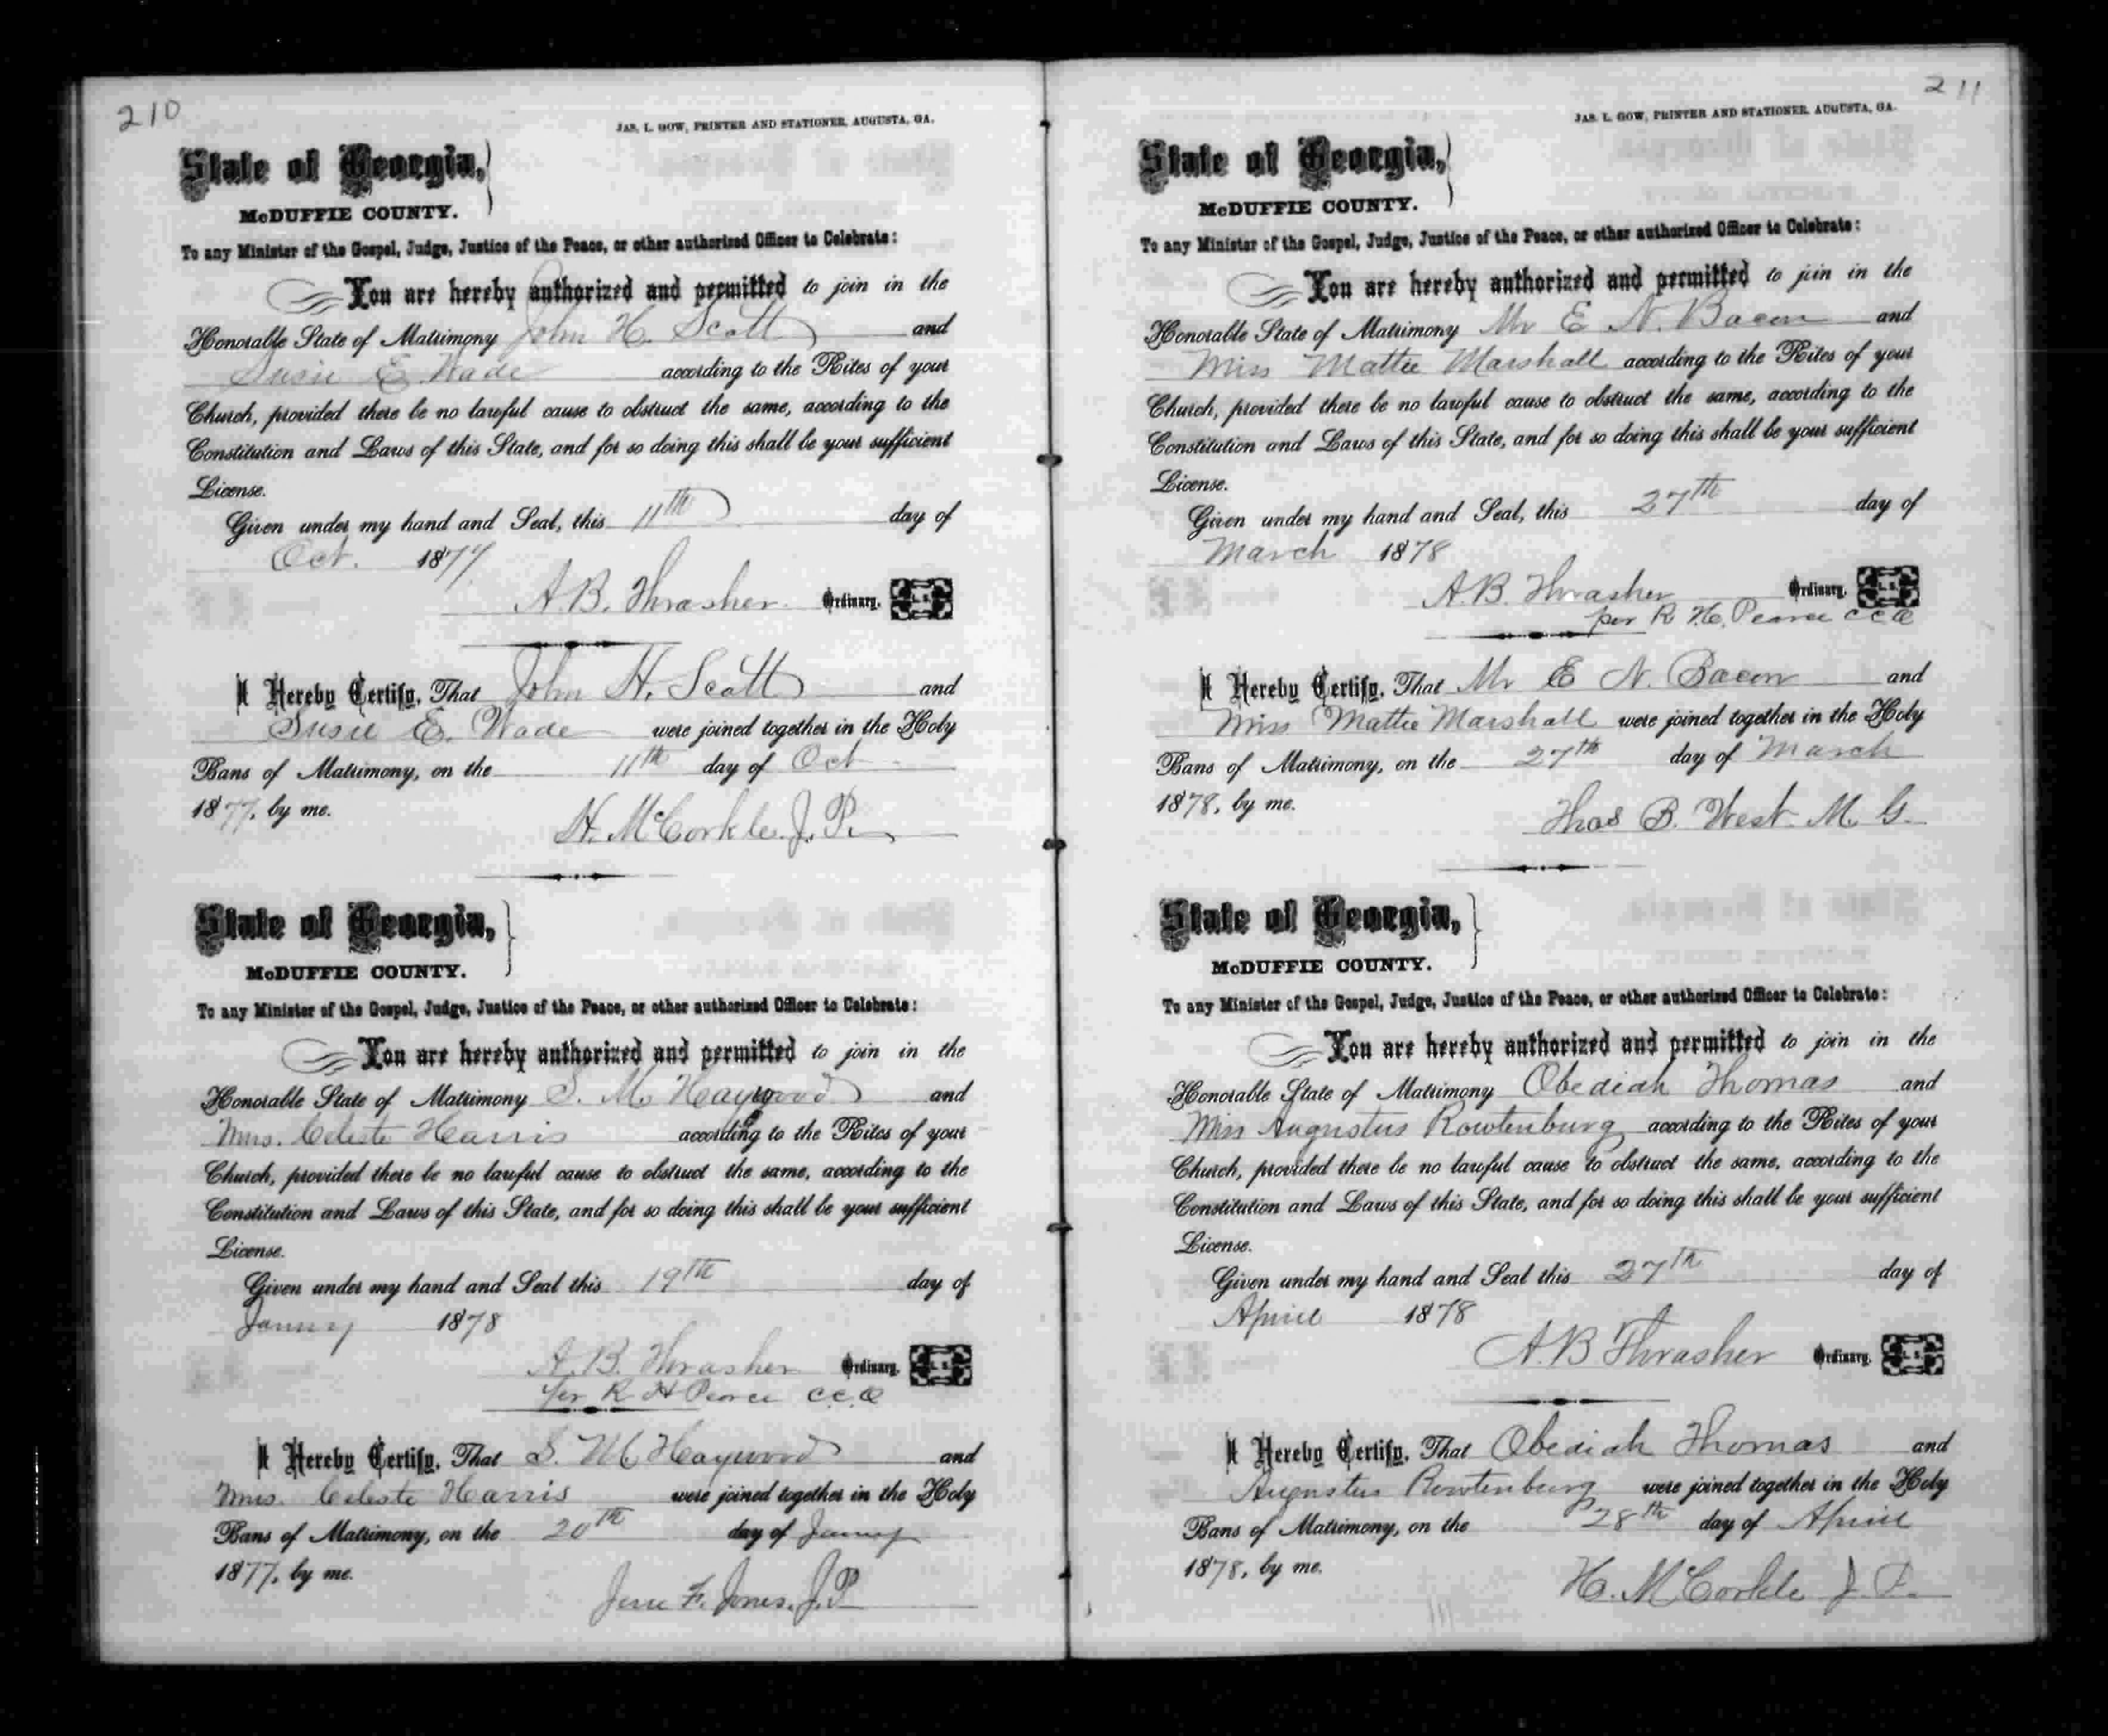 210
JAS. L. GOW, PRINTER AND STATIONER, AUGUSTA, GA.
State of Georgia,
McDUFFIE COUNTY.
To any Minister of the Gospel, Judge, Justice of the Peace, or other authorized Officer to Celebrate:
You are hereby authorized and permitted to join in the
Honorable State of Matrimony John H. Scott and
Susie E. Wade according to the Rites of your
Church, provided there be no lawful cause to obstruct the same, according to the
Constitution and Laws of this State, and for so doing this shall be your sufficient
License.
Given under my hand and Seal, this 11th day of
Oct. 1877
A. B. Thrasher Ordinary. L. S.
I Hereby Certify, That John H. Scott and
Susie E. Wade were joined together in the Holy
Bans of Matrimony, on the 11th day of Oct
1877, by me.
H. McCorkle. J. P.
State of Georgia,
McDUFFIE COUNTY.
To any Minister of the Gospel, Judge, Justice of the Peace, or other authorized Officer to Celebrate:
You are hereby authorized and permitted to join in the
Honorable State of Matrimony S. M. Haywood and
Mrs. Celeste Harris according to the Rites of your
Church, provided there be no lawful cause to obstruct the same, according to the
Constitution and Laws of this State, and for so doing this shall be your sufficient
License.
Given under my hand and Seal this 19th day of
Janny 1878
A. B. Thrasher Ordinary. L. S.
per R H Pearce C.C.O
I Hereby Certify, That S. M. Haywood and
Mrs. Celeste Harris were joined together in the Holy
Bans of Matrimony, on the 20th day of Janny
1877, by me.
Jesse F. Jones. J. P
211
JAS. L. GOW, PRINTER AND STATIONER, AUGUSTA, GA.
State of Georgia,
McDUFFIE COUNTY.
To any Minister of the Gospel, Judge, Justice of the Peace, or other authorized Officer to Celebrate:
You are hereby authorized and permitted to join in the
Honorable State of Matrimony Mr E N. Bacon and
Miss Mattie Marshall according to the Rites of your
Church, provided there be no lawful cause to obstruct the same, according to the
Constitution and Laws of this State, and for so doing this shall be your sufficient
License.
Given under my hand and Seal, this 27th day of
March 1878
A. B. Thrasher Ordinary. L. S.
per R. H. Pearce C C O
I Hereby Certify, That Mr E N. Bacon and
Miss Mattie Marshall were joined together in the Holy
Bans of Matrimony, on the 27th day of March
1878, by me.
Thos B. West. M. G.
State of Georgia,
McDUFFIE COUNTY.
To any Minister of the Gospel, Judge, Justice of the Peace, or other authorized Officer to Celebrate:
You are hereby authorized and permitted to join in the
Honorable State of Matrimony Obediah Thomas and
Miss Augustus Rowtenburg according to the Rites of your
Church, provided there be no lawful cause to obstruct the same, according to the
Constitution and Laws of this State, and for so doing this shall be your sufficient
License.
Given under my hand and Seal this 27th day of
Aprill 1878
A. B Thrasher Ordinary. L. S.
I Hereby Certify, That Obediah Thomas and
Augustus Rowtenburg were joined together in the Holy
Bans of Matrimony, on the 28th day of Aprill
1878, by me.
H. McCorkle J. P.